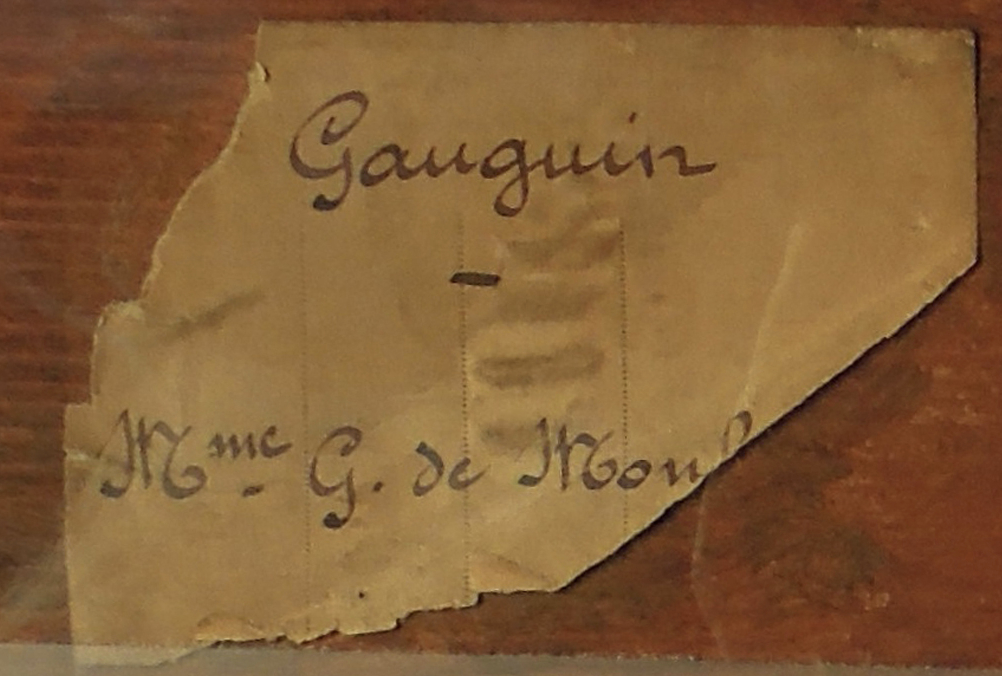 Gauguin
-
Mme. G. de